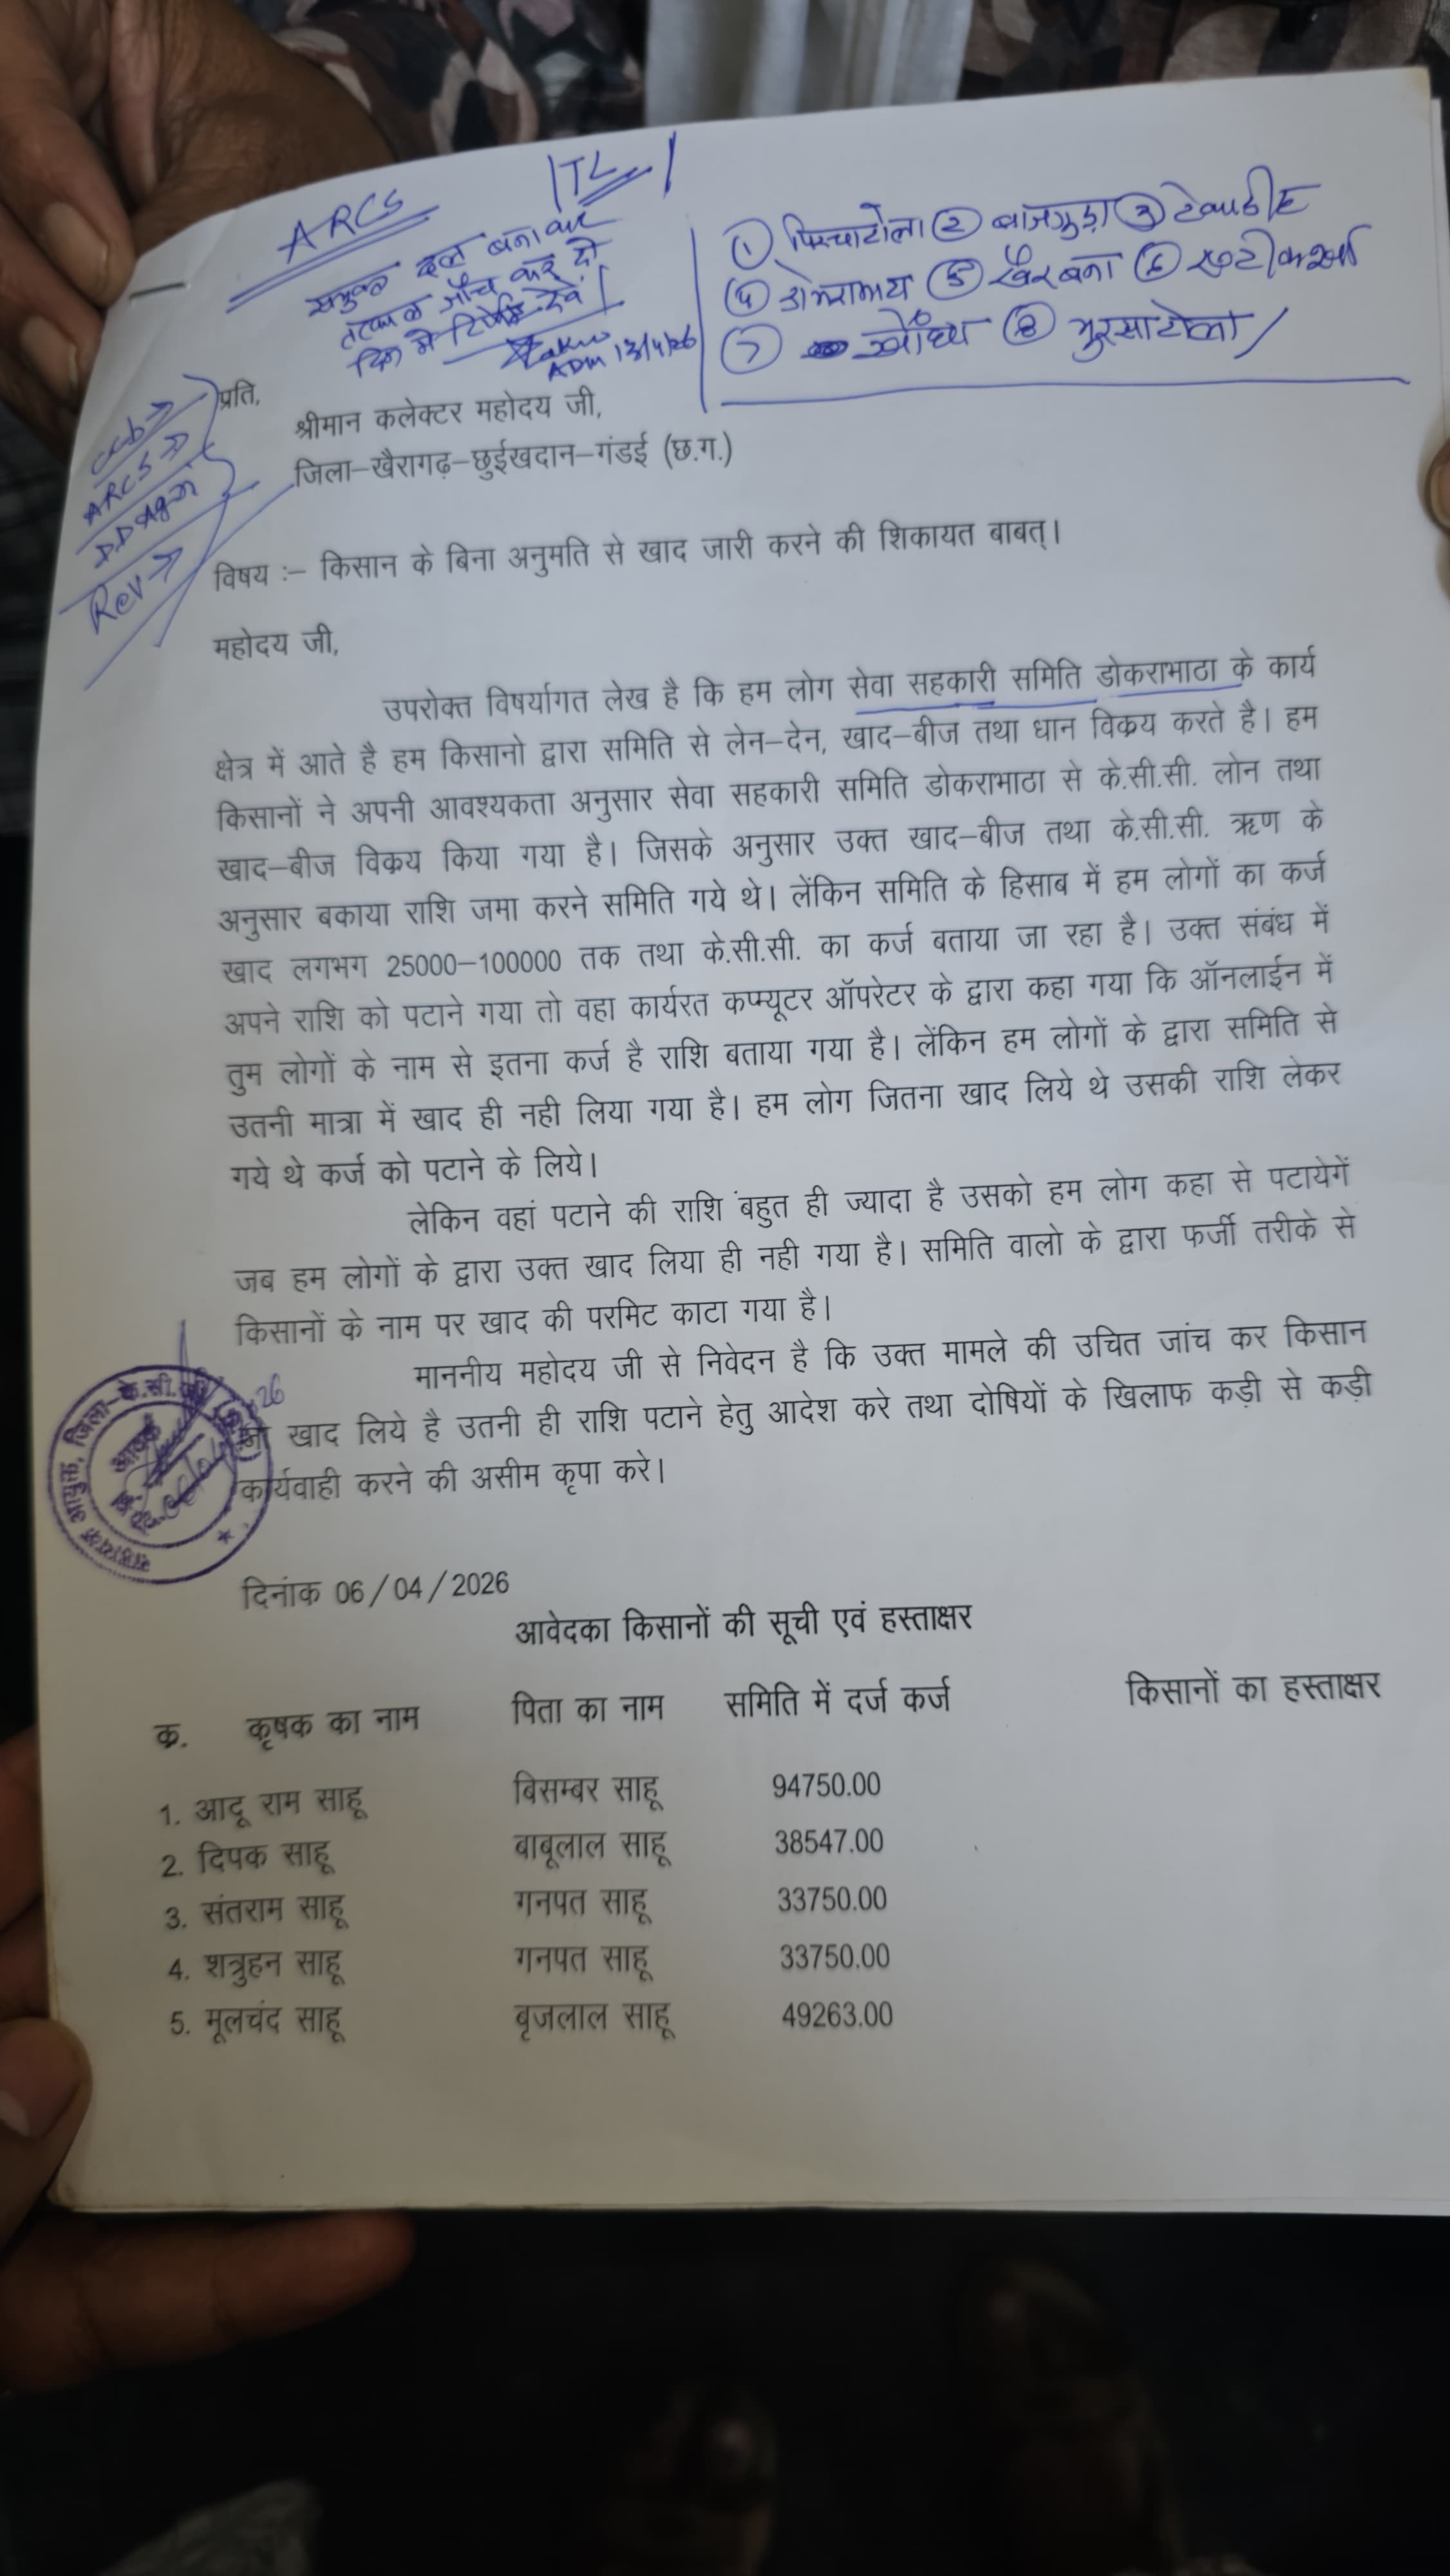 ARCS
TL
संयुक्त दल बनाकर
तत्काल जाँच कर दो
दिन में रिपोर्ट देवें
ADM 13/4/26
① पिपलाटोला ② बाजगुड़ा ③ देवाडीह
④ ⑤ खैरबना ⑥
⑦ ⑧ भुरसाटोला
ccb
ARCS
DD Agri
Rev
प्रति,
श्रीमान कलेक्टर महोदय जी,
जिला–खैरागढ़–छुईखदान–गंडई (छ.ग.)
विषय :– किसान के बिना अनुमति से खाद जारी करने की शिकायत बाबत्।
महोदय जी,
उपरोक्त विषर्यागत लेख है कि हम लोग सेवा सहकारी समिति डोकराभाठा के कार्य
क्षेत्र में आते है हम किसानो द्वारा समिति से लेन–देन, खाद–बीज तथा धान विक्रय करते है। हम
किसानों ने अपनी आवश्यकता अनुसार सेवा सहकारी समिति डोकराभाठा से के.सी.सी. लोन तथा
खाद–बीज विक्रय किया गया है। जिसके अनुसार उक्त खाद–बीज तथा के.सी.सी. ऋण के
अनुसार बकाया राशि जमा करने समिति गये थे। लेंकिन समिति के हिसाब में हम लोगों का कर्ज
खाद लगभग 25000–100000 तक तथा के.सी.सी. का कर्ज बताया जा रहा है। उक्त संबंध में
अपने राशि को पटाने गया तो वहा कार्यरत कम्प्यूटर ऑपरेटर के द्वारा कहा गया कि ऑनलाईन में
तुम लोगों के नाम से इतना कर्ज है राशि बताया गया है। लेंकिन हम लोगों के द्वारा समिति से
उतनी मात्रा में खाद ही नही लिया गया है। हम लोग जितना खाद लिये थे उसकी राशि लेकर
गये थे कर्ज को पटाने के लिये।
लेकिन वहां पटाने की राशि बहुत ही ज्यादा है उसको हम लोग कहा से पटायेगें
जब हम लोगों के द्वारा उक्त खाद लिया ही नही गया है। समिति वालो के द्वारा फर्जी तरीके से
किसानों के नाम पर खाद की परमिट काटा गया है।
माननीय महोदय जी से निवेदन है कि उक्त मामले की उचित जांच कर किसान
जो खाद लिये है उतनी ही राशि पटाने हेतु आदेश करे तथा दोषियों के खिलाफ कड़ी से कड़ी
कार्यवाही करने की असीम कृपा करे।
दिनांक 06/04/2026
आवेदका किसानों की सूची एवं हस्ताक्षर
क्र. कृषक का नाम पिता का नाम समिति में दर्ज कर्ज किसानों का हस्ताक्षर
1. आदू राम साहू बिसम्बर साहू 94750.00
2. दिपक साहू बाबूलाल साहू 38547.00
3. संतराम साहू गनपत साहू 33750.00
4. शत्रुहन साहू गनपत साहू 33750.00
5. मूलचंद साहू बृजलाल साहू 49263.00